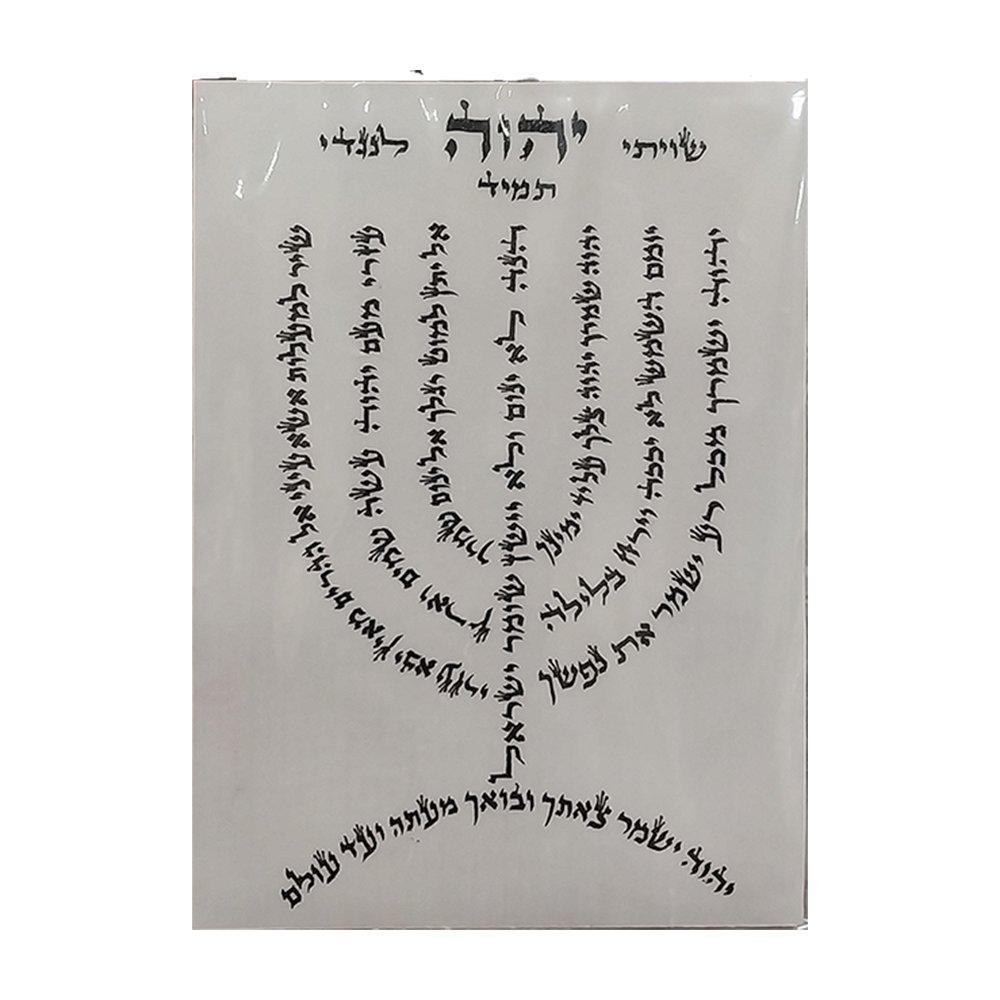 שויתי יהוה לנגדי
תמיד
שיר למעלות אשא עיני אל ההרים מאין יבא עזרי
עזרי מעם יהוה עשה שמים וארץ
אל יתן למוט רגלך אל ינום שמרך
הנה לא ינום ולא יישן שומר ישראל
יהוה שמרך יהוה צלך על יד ימינך
יומם השמש לא יככה וירח בלילה
יהוה ישמרך מכל רע ישמר את נפשך
יהוה ישמר צאתך ובואך מעתה ועד עולם